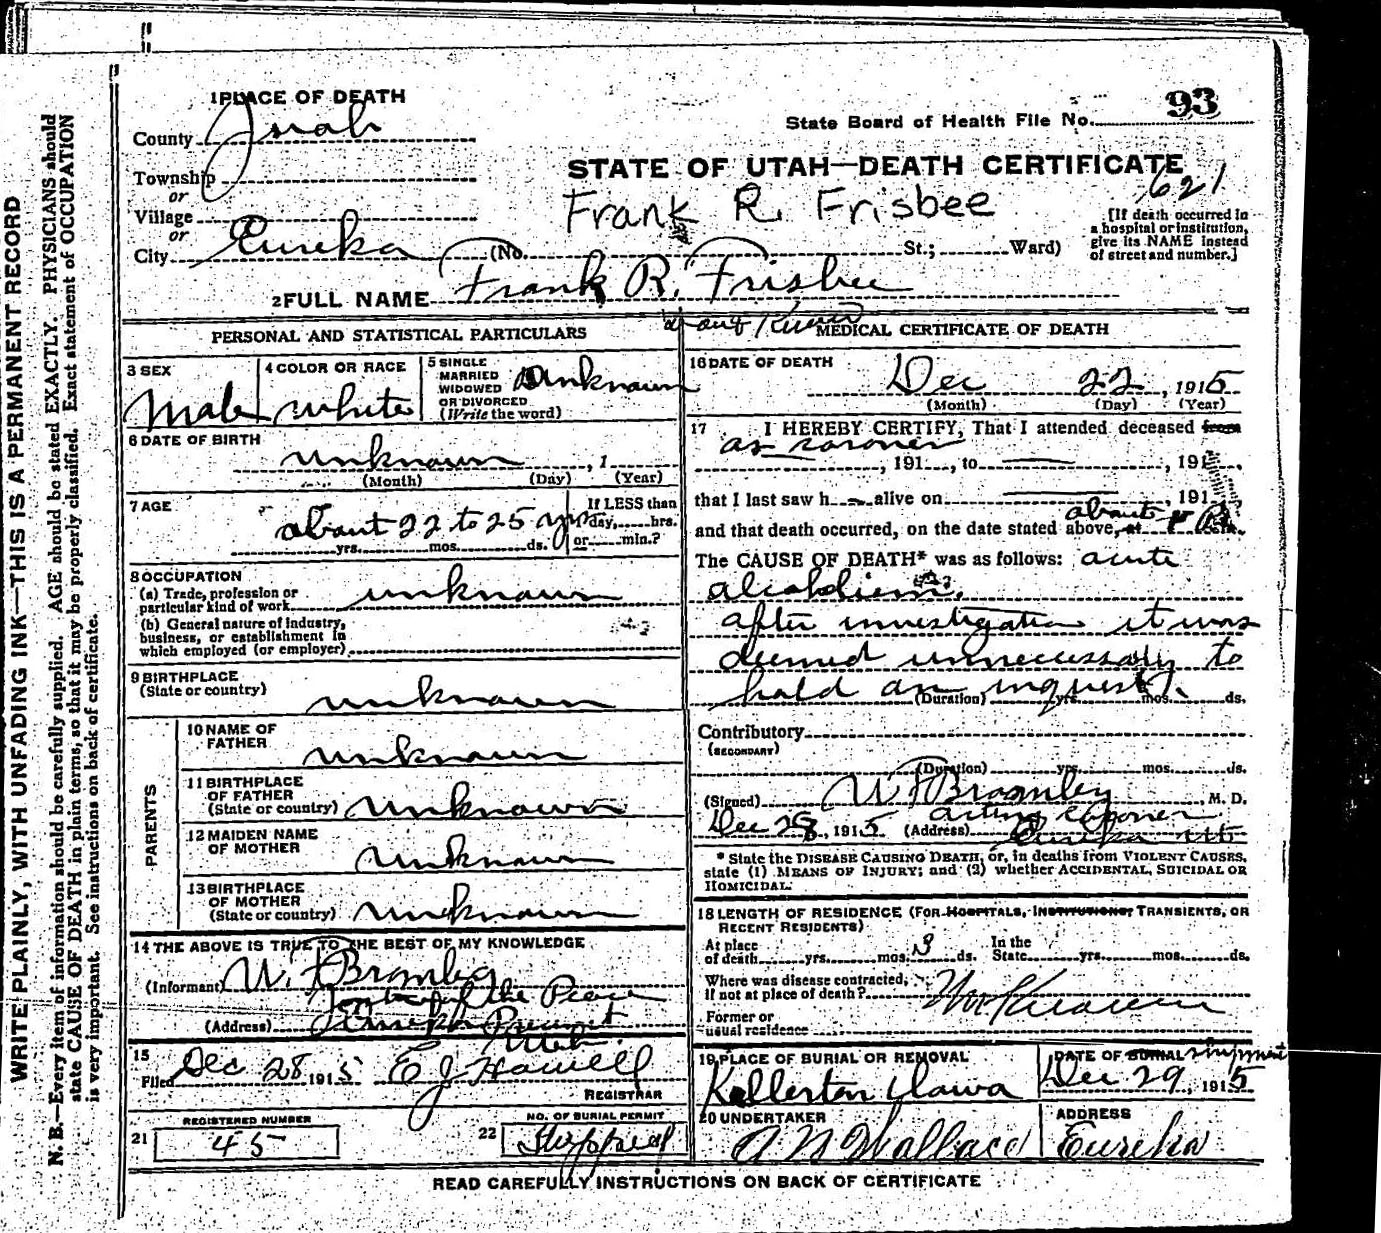 WRITE PLAINLY, WITH UNFADING INK—THIS IS A PERMANENT RECORD
N. B.—Every item of information should be carefully supplied. AGE should be stated EXACTLY. PHYSICIANS should
state CAUSE OF DEATH in plain terms, so that it may be properly classified. Exact statement of OCCUPATION
is very important. See instructions on back of certificate.
1 PLACE OF DEATH
County Juab
Township
or
Village
or
City Eureka (No. St.; Ward)
State Board of Health File No. 93
STATE OF UTAH—DEATH CERTIFICATE
621
Frank R. Frisbee
[If death occurred in
a hospital or institution,
give its NAME instead
of street and number.]
2 FULL NAME Frank R. Frisbee
PERSONAL AND STATISTICAL PARTICULARS
3 SEX
Male
4 COLOR OR RACE
White
5 SINGLE
MARRIED
WIDOWED
OR DIVORCED
(Write the word)
Unknown
6 DATE OF BIRTH
unknown , 1
(Month) (Day) (Year)
7 AGE
about 22 to 25 yrs
yrs. mos. ds.
If LESS than
day, hrs.
or min.?
8 OCCUPATION
(a) Trade, profession or
particular kind of work unknown
(b) General nature of industry,
business, or establishment in
which employed (or employer)
9 BIRTHPLACE
(State or country)
unknown
PARENTS
10 NAME OF
FATHER
unknown
11 BIRTHPLACE
OF FATHER
(State or country) unknown
12 MAIDEN NAME
OF MOTHER
unknown
13 BIRTHPLACE
OF MOTHER
(State or country) unknown
14 THE ABOVE IS TRUE TO THE BEST OF MY KNOWLEDGE
(Informant) W. F. Bromley
of the Peace
(Address) Eureka Precinct
Utah
15
Filed Dec 28 1915 E J Howell
REGISTRAR
REGISTERED NUMBER
21 45
NO. OF BURIAL PERMIT
22 Shipped
MEDICAL CERTIFICATE OF DEATH
16 DATE OF DEATH
Dec 22, 1915
(Month) (Day) (Year)
17 I HEREBY CERTIFY, That I attended deceased from
as coroner
, 191 , to , 191
that I last saw h alive on , 191
and that death occurred, on the date stated above, at about
The CAUSE OF DEATH* was as follows: acute
alcoholism.
after investigation it was
deemed unnecessary to
hold an inquest.
(Duration) yrs. mos. ds.
Contributory
(SECONDARY)
(Duration) yrs. mos. ds.
(Signed) W F Bromley, M. D.
acting coroner
Dec 28, 1915 (Address) Eureka Ut
* State the DISEASE CAUSING DEATH, or, in deaths from VIOLENT CAUSES,
state (1) MEANS OF INJURY; and (2) whether ACCIDENTAL, SUICIDAL OR
HOMICIDAL.
18 LENGTH OF RESIDENCE (FOR HOSPITALS, INSTITUTIONS, TRANSIENTS, OR
RECENT RESIDENTS)
At place
of death yrs. mos. 3 ds.
In the
State yrs. mos. ds.
Where was disease contracted,
If not at place of death?
Former or
usual residence
19 PLACE OF BURIAL OR REMOVAL
Kellerton Iowa
DATE OF BURIAL shipment
Dec 29, 1915
20 UNDERTAKER
A N Wallace
ADDRESS
Eureka
READ CAREFULLY INSTRUCTIONS ON BACK OF CERTIFICATE